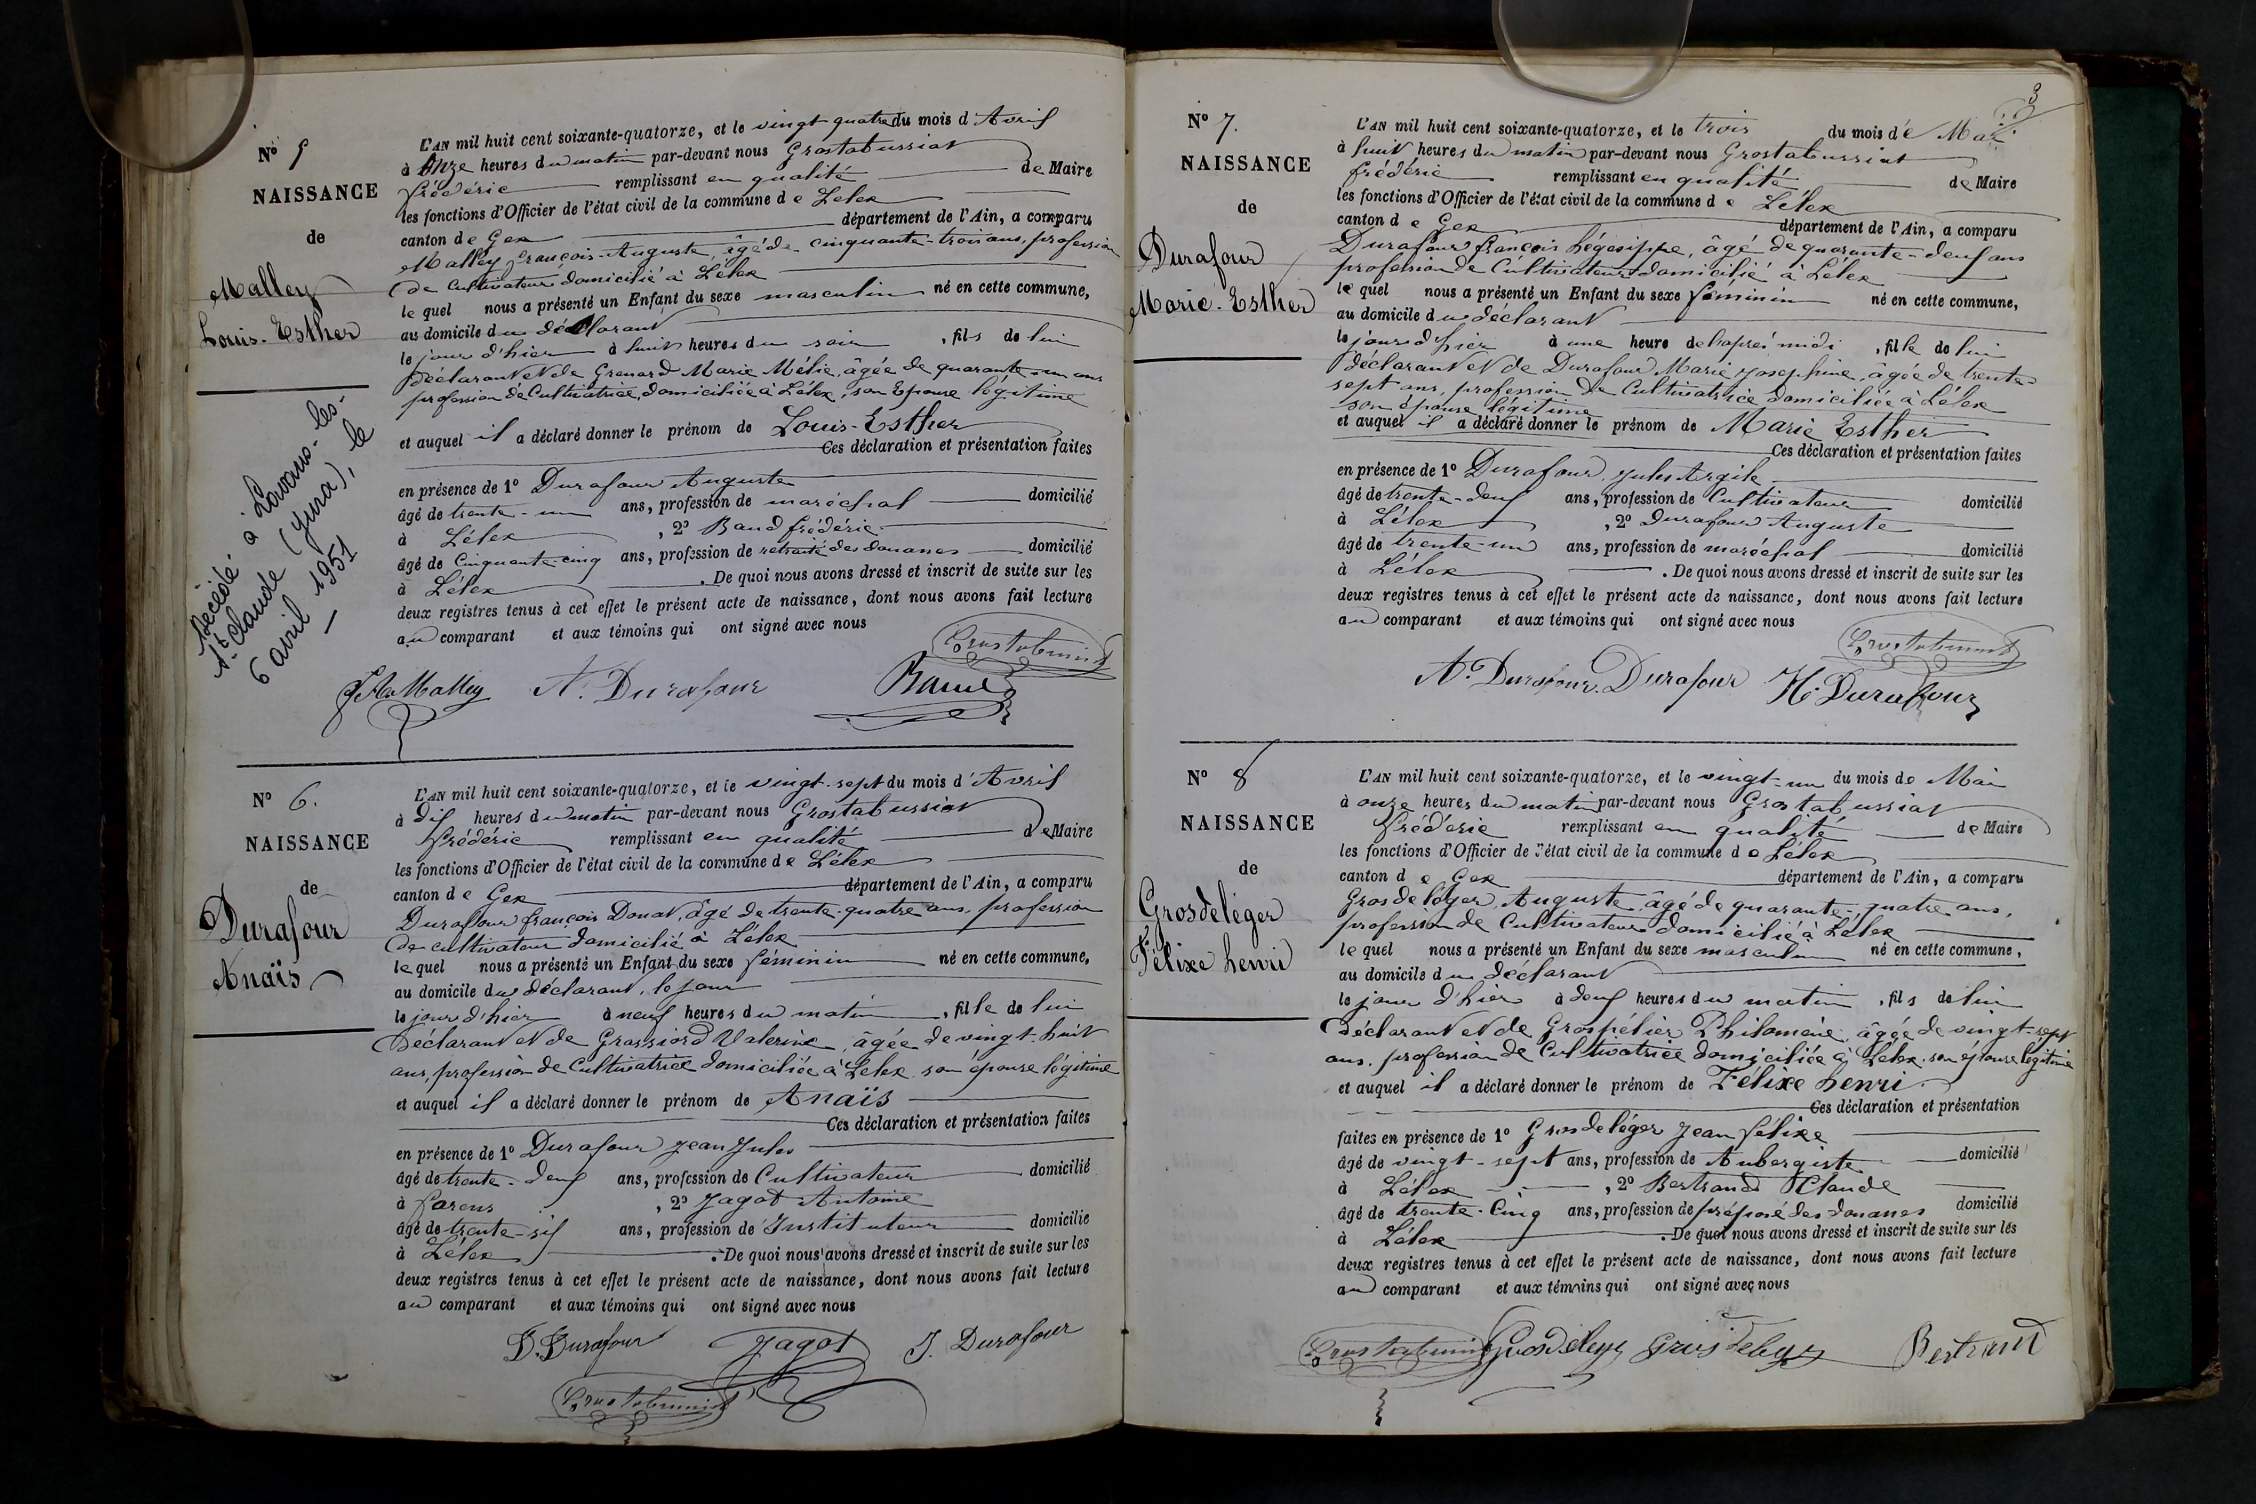 N° 5
NAISSANCE
de
Malley
Louis-Esther
Décédé à Lavans-les-
St-Claude (Jura), le
6 avril 1951
L'AN mil huit cent soixante-quatorze, et le vingt quatre du mois d'Avril
à Onze heures du matin par-devant nous Grostabussiat
frédéric remplissant en qualité de Maire
les fonctions d'Officier de l'état civil de la commune de Lélex
canton de Gex département de l'Ain, a comparu
Malley françois-Auguste, âgé de cinquante-trois ans, profession
de Cultivateur domicilié à Lélex
le quel nous a présenté un Enfant du sexe masculin né en cette commune,
au domicile du déclarant
le jour d'hier à huit heures du soir, fils de lui
déclarant et de Grenard Marie Mélie, âgée de quarante-un ans
profession de Cultivatrice, domiciliée à Lélex, son Epouse légitime
et auquel il a déclaré donner le prénom de Louis-Esther
Ces déclaration et présentation faites
en présence de 1° Durafour Auguste
âgé de trente-un ans, profession de maréchal domicilié
à Lélex, 2° Baud frédéric
âgé de Cinquante-cinq ans, profession de retraité des douanes domicilié
à Lélex. De quoi nous avons dressé et inscrit de suite sur les
deux registres tenus à cet effet le présent acte de naissance, dont nous avons fait lecture
au comparant et aux témoins qui ont signé avec nous
Grostabussiat
Malley A. Durafour Baud
N° 6.
NAISSANCE
de
Durafour
Anaïs
L'AN mil huit cent soixante-quatorze, et le vingt-sept du mois d'Avril
à dix heures du matin par-devant nous Grostabussiat
frédéric remplissant en qualité de Maire
les fonctions d'Officier de l'état civil de la commune de Lélex
canton de Gex département de l'Ain, a comparu
Durafour françois Donat, âgé de trente-quatre ans, profession
de cultivateur domicilié à Lélex
le quel nous a présenté un Enfant du sexe féminin né en cette commune,
au domicile du déclarant, le jour
le jour d'hier à neuf heures du matin, fille de lui
Déclarant et de Grassiord Valerine, âgée de vingt-huit
ans, profession de Cultivatrice domiciliée à Lélex son épouse légitime
et auquel il a déclaré donner le prénom de Anaïs
Ces déclaration et présentation faites
en présence de 1° Durafour Jean Jules
âgé de trente-deux ans, profession de Cultivateur domicilié
à farens, 2° Jagot Antoine
âgé de trente-six ans, profession de Instituteur domicilié
à Lélex. De quoi nous avons dressé et inscrit de suite sur les
deux registres tenus à cet effet le présent acte de naissance, dont nous avons fait lecture
au comparant et aux témoins qui ont signé avec nous
D. Durafour Jagot J. Durafour
Grostabussiat
3
N° 7.
NAISSANCE
de
Durafour
Marie-Esther
L'AN mil huit cent soixante-quatorze, et le trois du mois de Mai
à huit heures du matin par-devant nous Grostabussiat
frédéric remplissant en qualité de Maire
les fonctions d'Officier de l'état civil de la commune de Lélex
canton de Gex département de l'Ain, a comparu
Durafour françois hégésippe, âgé de quarante-deux ans
profession de Cultivateur domicilié à Lélex
le quel nous a présenté un Enfant du sexe féminin né en cette commune,
au domicile du déclarant
le jour d'hier à une heure de l'après midi, fille de lui
déclarant et de Durafour Marie Josephine, âgée de trente-
sept ans, profession de Cultivatrice domiciliée à Lélex
son épouse légitime
et auquel il a déclaré donner le prénom de Marie Esther
Ces déclaration et présentation faites
en présence de 1° Durafour, Jules Argile
âgé de trente-deux ans, profession de Cultivateur domicilié
à Lélex, 2° Durafour Auguste
âgé de trente-un ans, profession de maréchal domicilié
à Lélex. De quoi nous avons dressé et inscrit de suite sur les
deux registres tenus à cet effet le présent acte de naissance, dont nous avons fait lecture
au comparant et aux témoins qui ont signé avec nous
Grostabussiat
A. Durafour. Durafour H. Durafour
N° 8
NAISSANCE
de
Grosdeléger
Félixe henri
L'AN mil huit cent soixante-quatorze, et le vingt-un du mois de Mai
à onze heures du matin par-devant nous Grostabussiat
frédéric remplissant en qualité de Maire
les fonctions d'Officier de l'état civil de la commune de Lélex
canton de Gex département de l'Ain, a comparu
Grosdeléger, Auguste, âgé de quarante-quatre ans,
profession de Cultivateur domicilié à Lélex
le quel nous a présenté un Enfant du sexe masculin né en cette commune,
au domicile du déclarant
le jour d'hier à deux heures du matin, fils de lui
Déclarant et de Grospélier Philomène, âgée de vingt-sept
ans, profession de Cultivatrice domiciliée à Lélex son épouse légitime
et auquel il a déclaré donner le prénom de Félixe henri
Ces déclaration et présentation
faites en présence de 1° Grosdeléger Jean félixe
âgé de vingt-sept ans, profession de Aubergiste domicilié
à Lélex, 2° Bertrand Claude
âgé de trente-Cinq ans, profession de préposé des douanes domicilié
à Lélex. De quoi nous avons dressé et inscrit de suite sur les
deux registres tenus à cet effet le présent acte de naissance, dont nous avons fait lecture
au comparant et aux témoins qui ont signé avec nous
Grostabussiat Grosdeleger Grosdeleger Bertrand